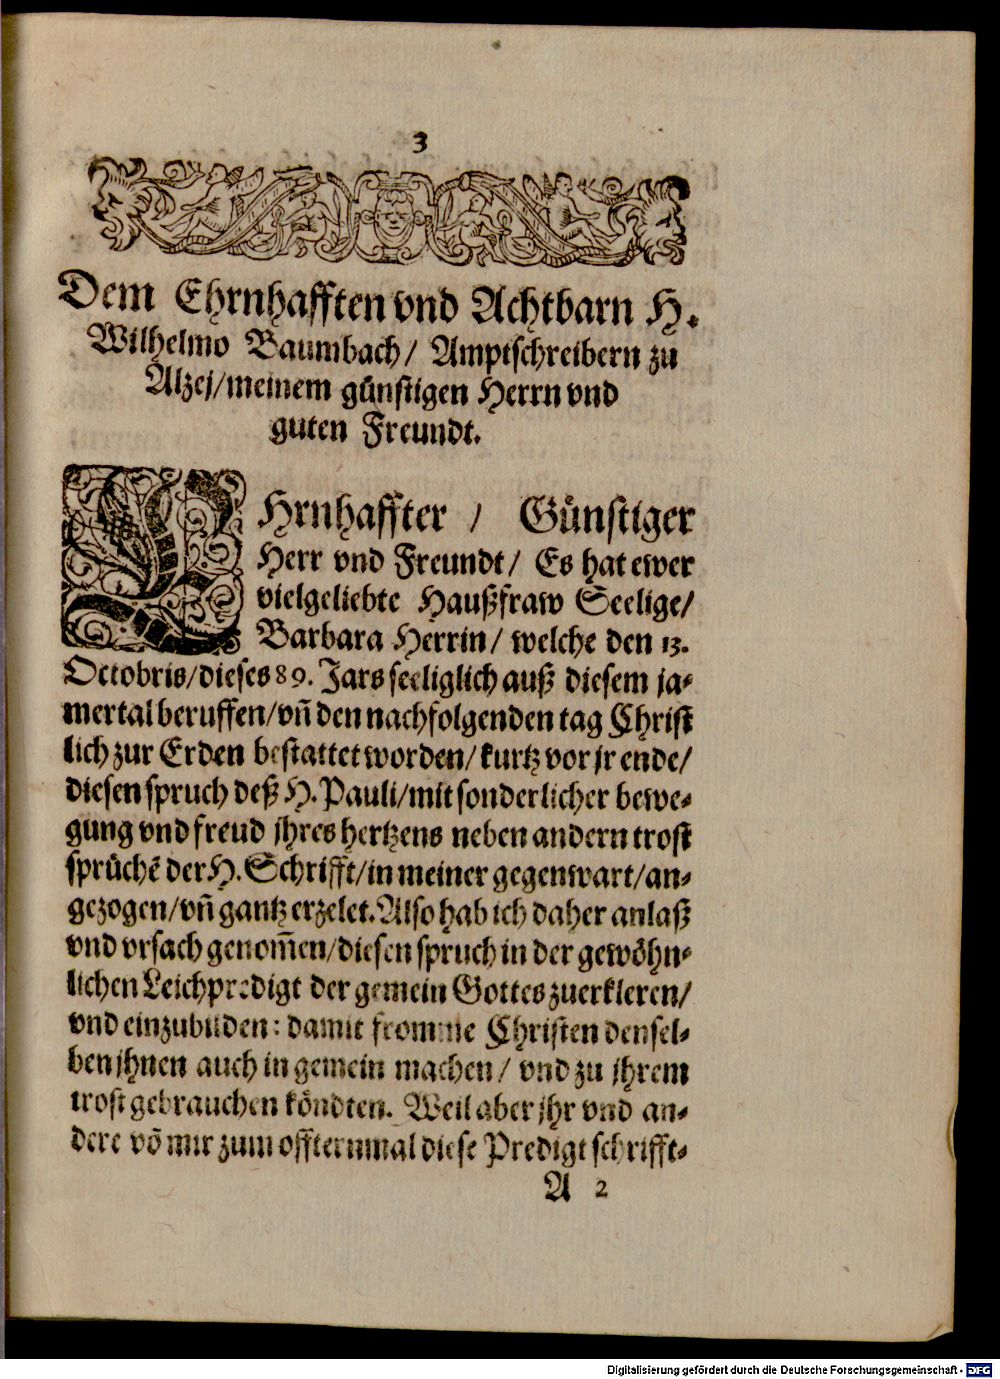 3
Dem Ehrnhafften vnd Achtbarn H.
Wilhelmo Baumbach/ Amptschreibern zu
Alzej/meinem günstigen Herrn vnd
guten Freundt.
EHrnhaffter / Günstiger
Herr vnd Freundt/ Es hat ewer
vielgeliebte Haußfraw Seelige/
Barbara Herrin/ welche den 13.
Octobris/dieses 89. Jars seeliglich auß diesem ja-
mertal beruffen/vñ den nachfolgenden tag Christ
lich zur Erden bestattet worden/kurtz vor jr ende/
diesen spruch deß H. Pauli/mit sonderlicher bewe-
gung vnd freud jhres hertzens neben andern trost
sprüchẽ der H. Schrifft/in meiner gegenwart/an-
gezogen/vñ gantz erzelet. Also hab ich daher anlaß
vnd vrsach genom̃en/diesen spruch in der gewöhn-
lichen Leichpredigt der gemein Gottes zuerkleren/
vnd einzubilden: damit fromme Christen densel-
ben jhnen auch in gemein machen/ vnd zu jhrem
trost gebrauchen köndten. Weil aber jhr vnd an-
dere võ mir zum offternmal diese Predigt schrifft-
A 2
Digitalisierung gefördert durch die Deutsche Forschungsgemeinschaft - DFG